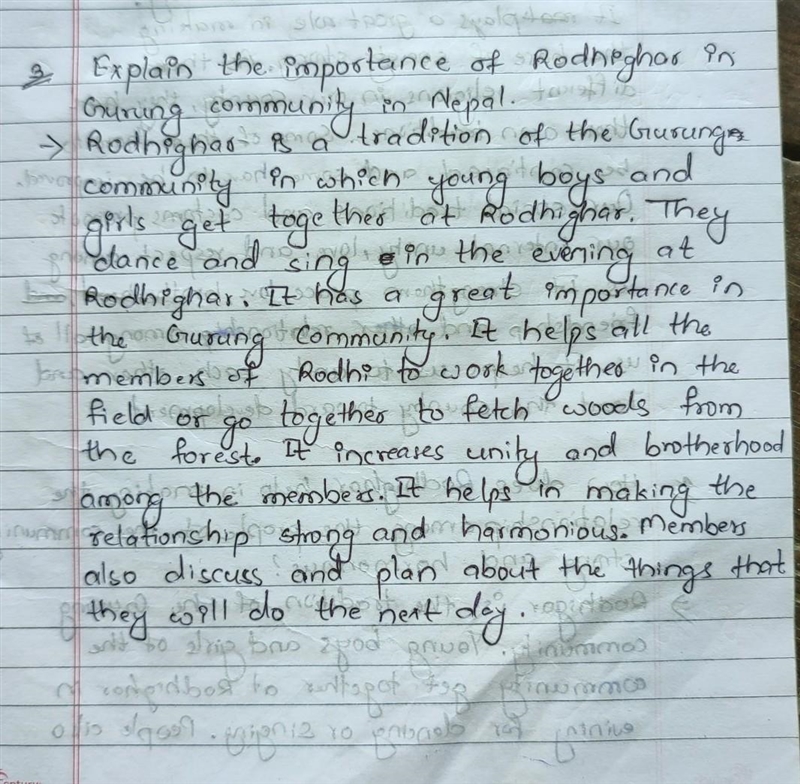 3 Explain the importance of Rodhighar in
Gurung community in Nepal.
→ Rodhighar is a tradition of the Gurung
community in which young boys and
girls get together at Rodhighar. They
dance and sing in the evening at
Rodhighar. It has a great importance in
the Gurung Community. It helps all the
members of Rodhi to work together in the
field or go together to fetch woods from
the forest. It increases unity and brotherhood
among the members. It helps in making the
relationship strong and harmonious. Members
also discuss and plan about the things that
they will do the next day.